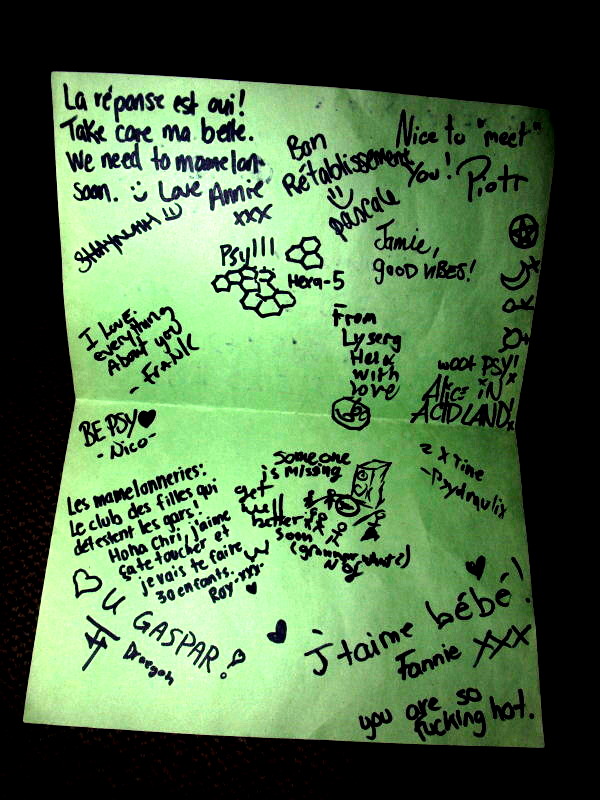 La réponse est oui!
Take care ma belle.
We need to mamelon
soon. Love Annie
xxx
Bon
Rétablissement
Pascale
Nice to "meet"
You! Piotr
Jamie,
good vibes!
Psy!!!
Hexa-5
I Love
everything
About you
- Frank
From
Lyserg
Hela
with
love
woot PSY!
Alice iN
ACIDLAND!
BE PSY
- Nico -
2 x Time
- Psydraulix
Les mamelonneries:
Le club des filles qui
détestent les gars!
Haha Chri, j'aime
ça te toucher et
je vais te faire
30 enfants.
Roy-xxx-
Someone
is missing
get
well
better
soon
U GASPAR!
J'taime bébé!
Fannie XXX
you are so
fucking hot.